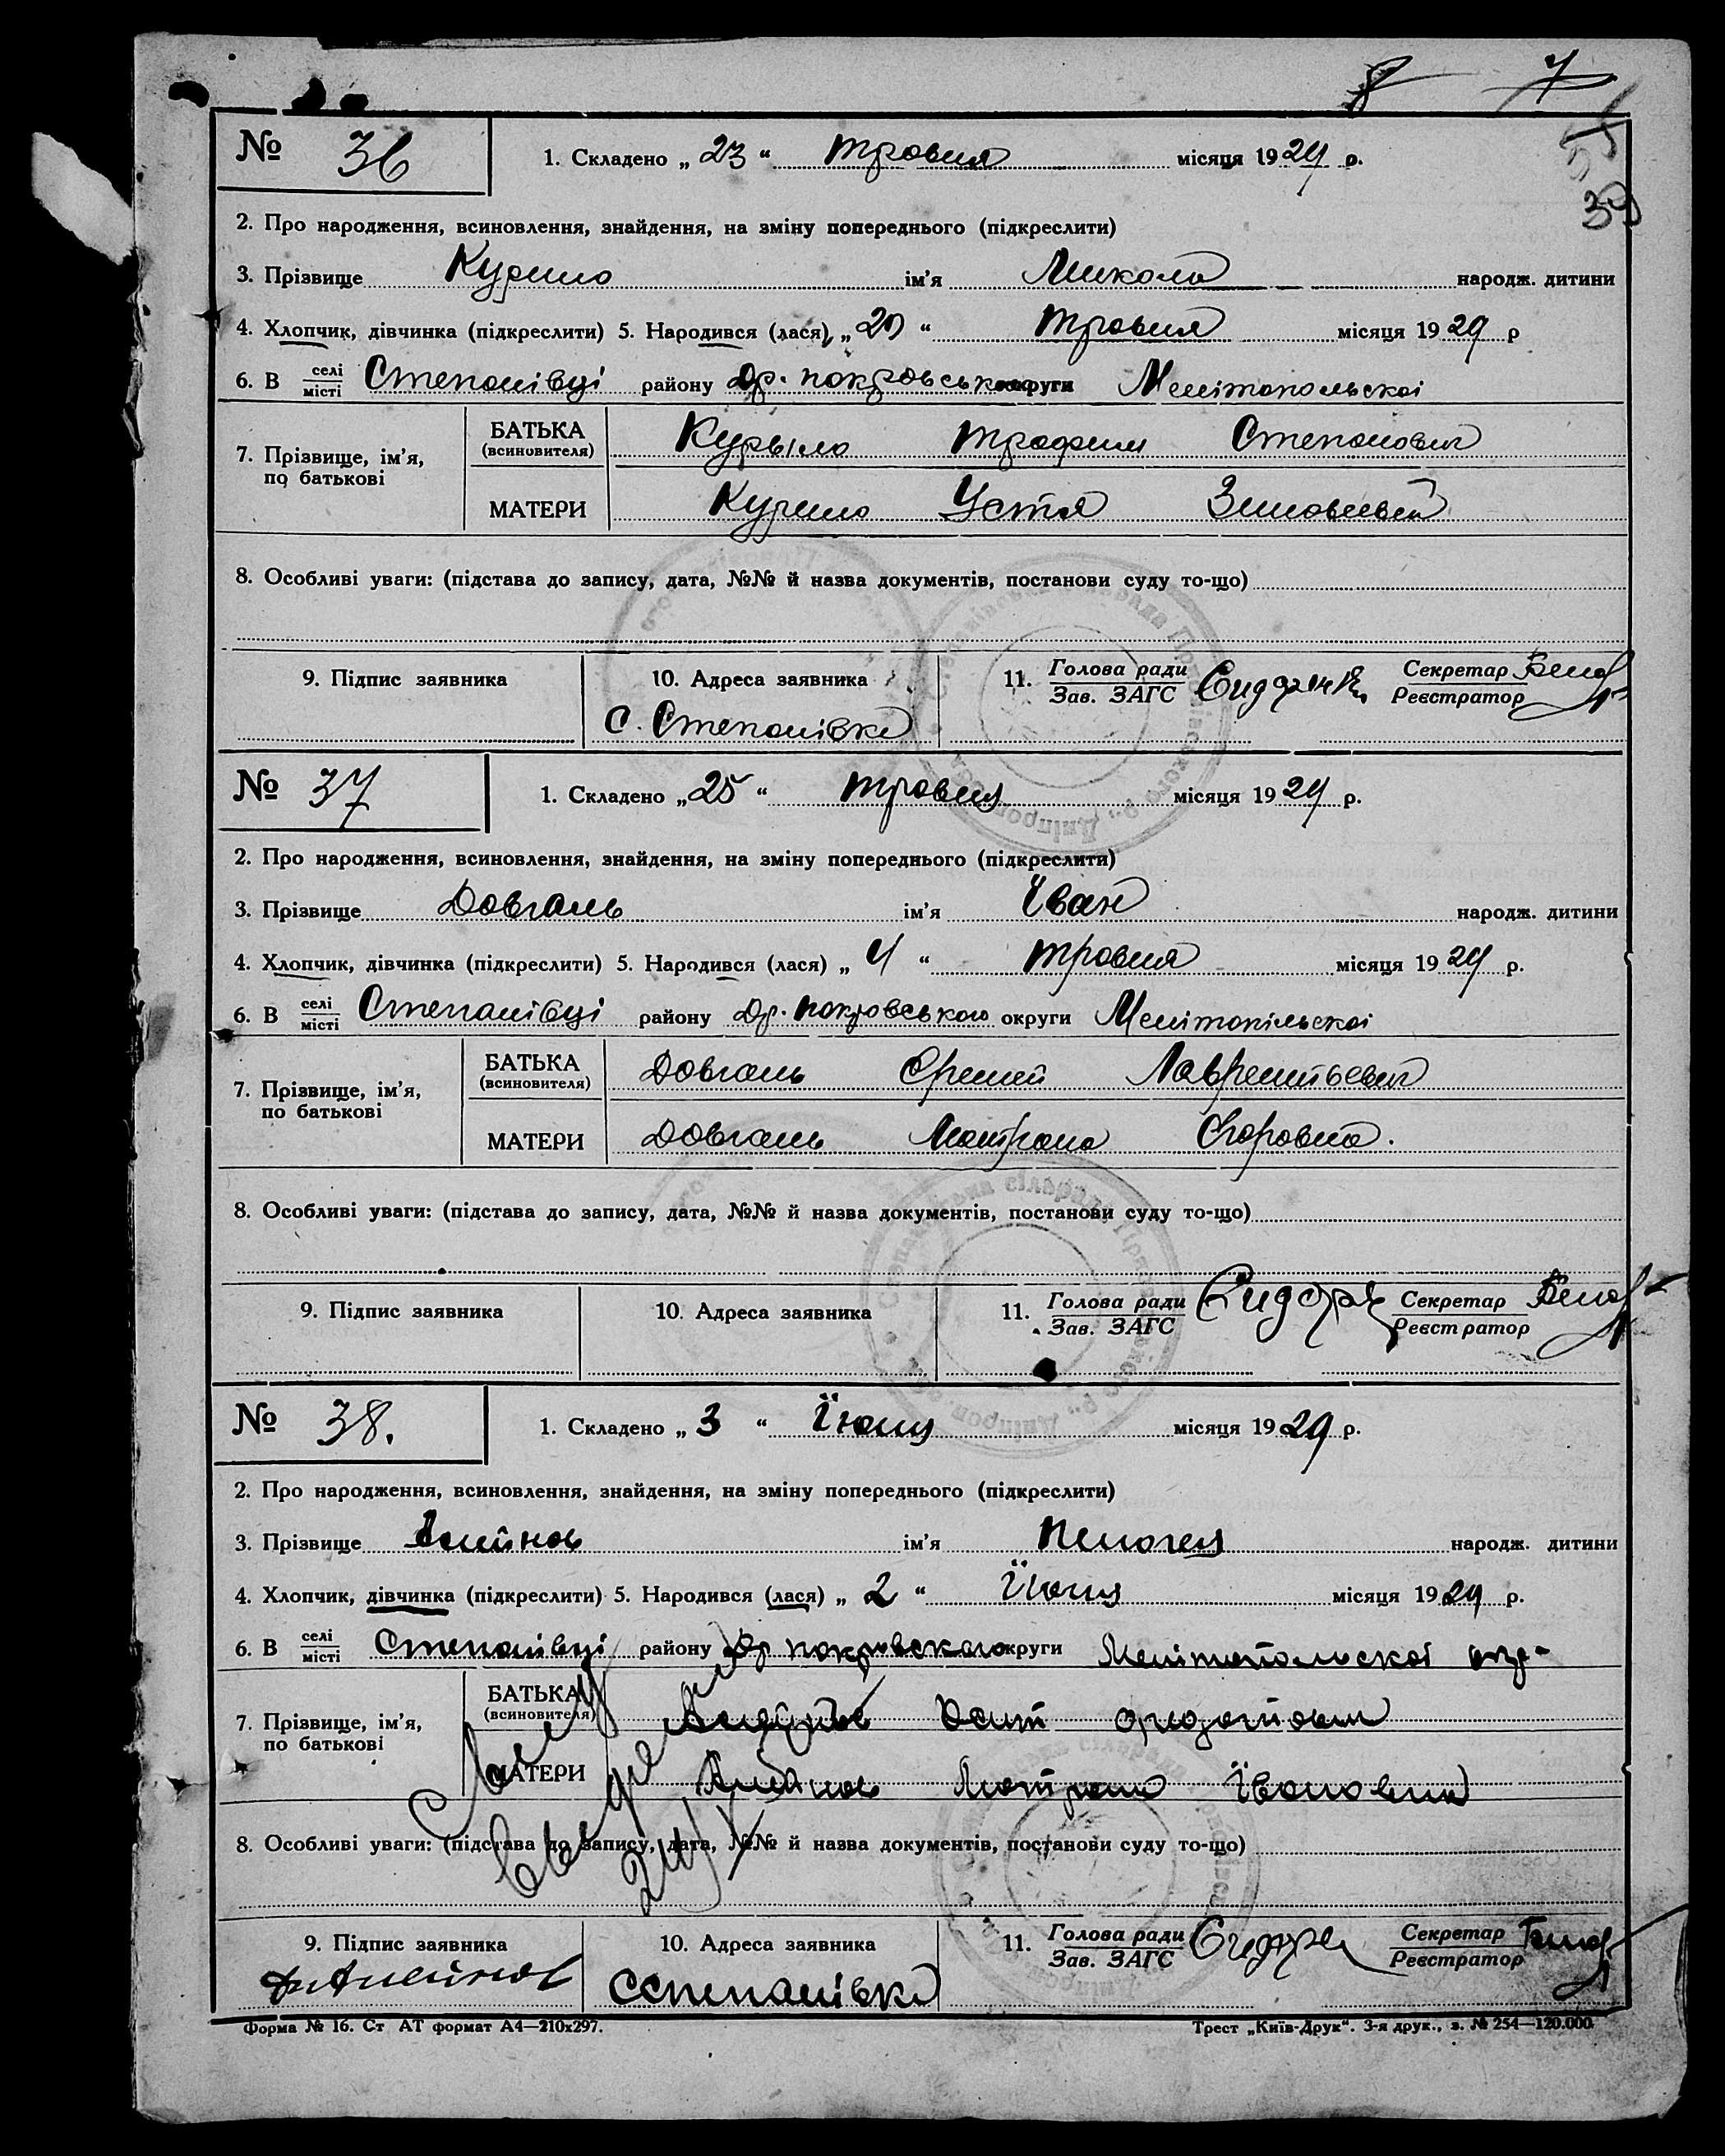 7
39
№ 36 1. Складено „ 23 “ травня місяця 1929 р.
2. Про народження, всиновлення, знайдення, на зміну попереднього (підкреслити)
3. Прізвище Курило ім’я Микола народж. дитини
4. Хлопчик, дівчинка (підкреслити) 5. Народився (лася) „ 20 “ травня місяця 1929 р
6. В селі місті Степанівці району Др. покровськ округи Мелітопольскоі
7. Прізвище, ім’я, по батькові
БАТЬКА (всиновителя) Курыло Трофим Степанович
МАТЕРИ Курило Устя Зиновеевна
8. Особливі уваги: (підстава до запису, дата, №№ й назва документів, постанови суду то-що)
9. Підпис заявника 10. Адреса заявника 11. Голова ради Зав. ЗАГС Секретар Реєстратор
с. Степанівка
№ 37 1. Складено „ 25 “ травня місяця 1929 р.
2. Про народження, всиновлення, знайдення, на зміну попереднього (підкреслити)
3. Прізвище Довгаль ім’я Іван народж. дитини
4. Хлопчик, дівчинка (підкреслити) 5. Народився (лася) „ “ травня місяця 1929 р.
6. В селі місті Степанівці району Др. покровського округи Мелітопільскоі
7. Прізвище, ім’я, по батькові
БАТЬКА (всиновителя) Довгаль Лаврентьевич
МАТЕРИ Довгаль Мотрона Егоровна.
8. Особливі уваги: (підстава до запису, дата, №№ й назва документів, постанови суду то-що)
9. Підпис заявника 10. Адреса заявника 11. Голова ради Зав. ЗАГС Секретар Реєстратор
№ 38. 1. Складено „ 3 “ Їюня місяця 1929 р.
2. Про народження, всиновлення, знайдення, на зміну попереднього (підкреслити)
3. Прізвище Алейнов ім’я Пелагея народж. дитини
4. Хлопчик, дівчинка (підкреслити) 5. Народився (лася) „ 2 “ Їюня місяця 1929 р.
6. В селі місті Степанівці району Др покровскаго округи Мелітопольскоі окр-
7. Прізвище, ім’я, по батькові
БАТЬКА (всиновителя)
МАТЕРИ Мотрона Ївановна
8. Особливі уваги: (підстава до запису, дата, №№ й назва документів, постанови суду то-що)
9. Підпис заявника 10. Адреса заявника 11. Голова ради Зав. ЗАГС Секретар Реєстратор
Сстепанівка
Форма № 16. Ст АТ формат А4—210х297. Трест „Київ-Друк“. 3-я друк., з. № 254—120.000.